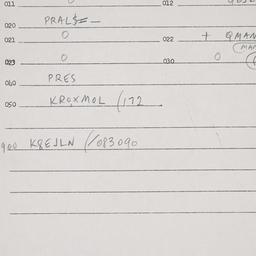 011 012
020 PRAL$=-
021 0 022 + QMAN
023 0 030 0
040 PRES
050 KROXMOL (172
900 KQEJLN (/083090